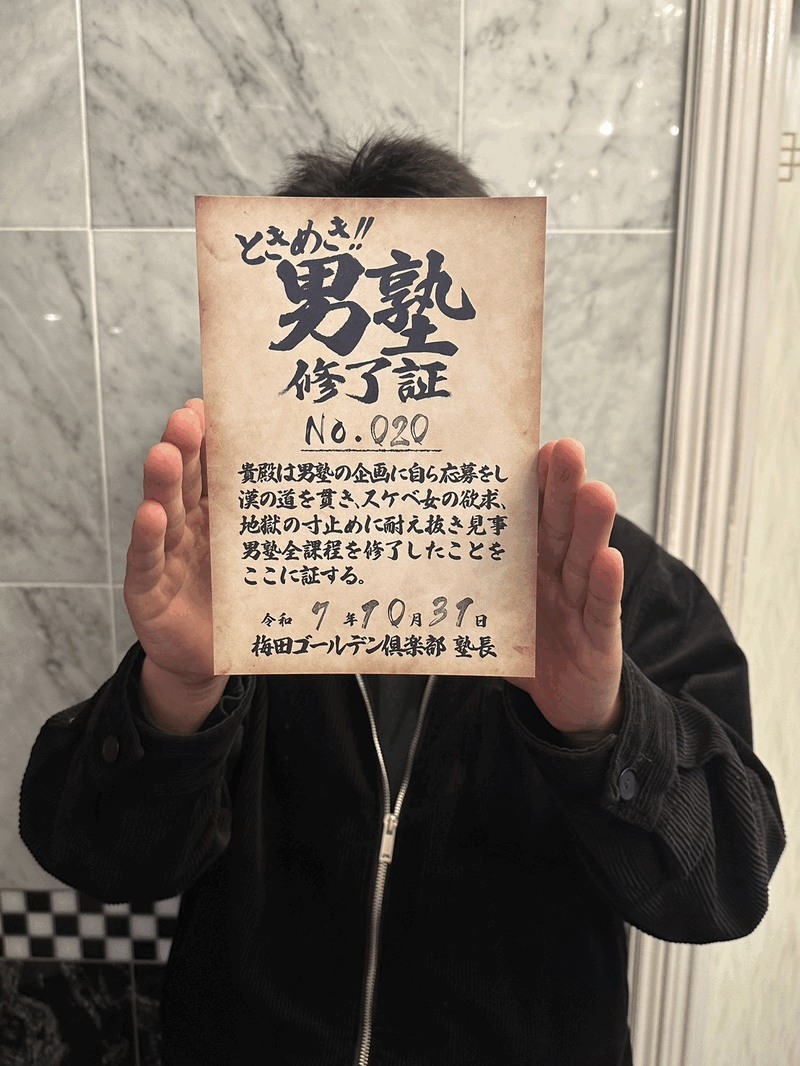 ときめき!!
男塾
修了証
No.020
貴殿は男塾の企画に自ら応募をし
漢の道を貫き、スケベ女の欲求、
地獄の寸止めに耐え抜き見事
男塾全課程を修了したことを
ここに証する。
令和 7 年 10 月 31 日
梅田ゴールデン倶楽部 塾長